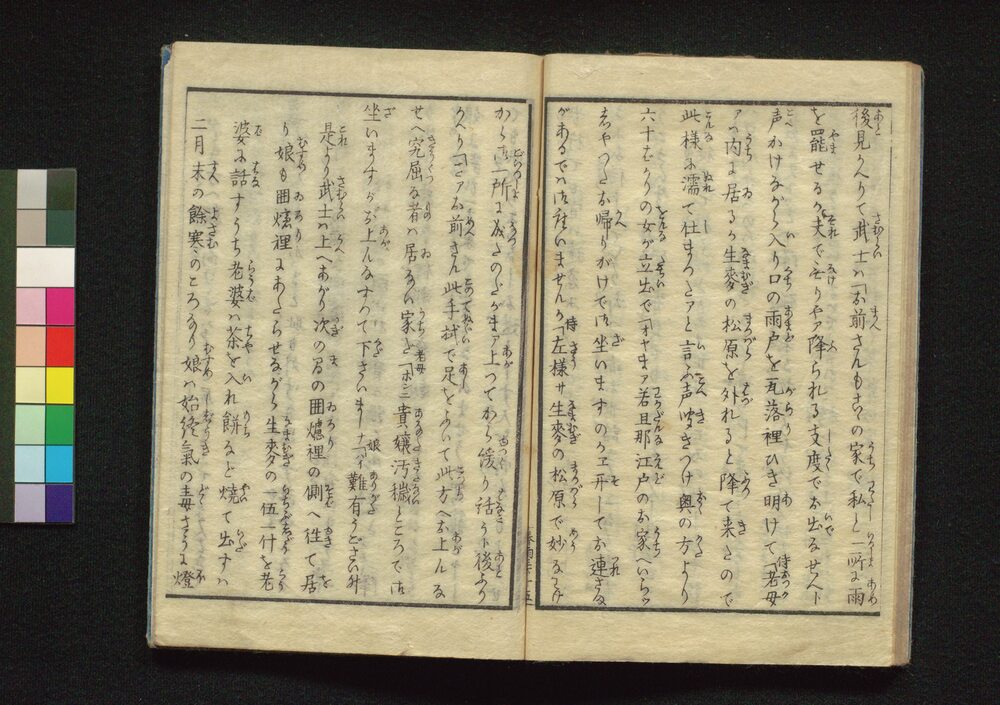 後見かへりて武士ハ「お前さんもこの家で私と一所に雨
を罷せるが夫で無りやア降られる支度でお出なせへト
声かけながら入り口の雨戸を瓦落裡ひき明けて侍「老母
アハ内に居るか生麥の松原を外れると降て来たので
此様に濡て仕まつたアと言ふ声聞きつけ奥の方より
六十ばかりの女が立出で「ヲヤまア若旦那江戸のお家へいらツ
しやつたお帰りがけで御坐いますのかエ并してお連さまが
があるでハ御座いませんか侍「左様サ生麥の松原で妙なことか
から御一所に成たのだがまア上つてから緩り話うト後ふり
かへり「コレサお前さん此手拭で足をふいて此方へお上んな
せへ究屈な者ハ居ない家だ老母「ホンニ貴嬢汚穢ところで御
坐いますがお上んなすつて下さいまし娘「ハイ難有うございます
是より武士ハ上へあがり次の間の囲爐裡の側へ徃て居
り娘も囲爐裡にあたらせながら生麥の一伍一什を老
婆に話すうち老婆ハ茶を入れ餅など焼て出すハ
二月末の餘寒のころなり娘ハ始終氣の毒さうに燈